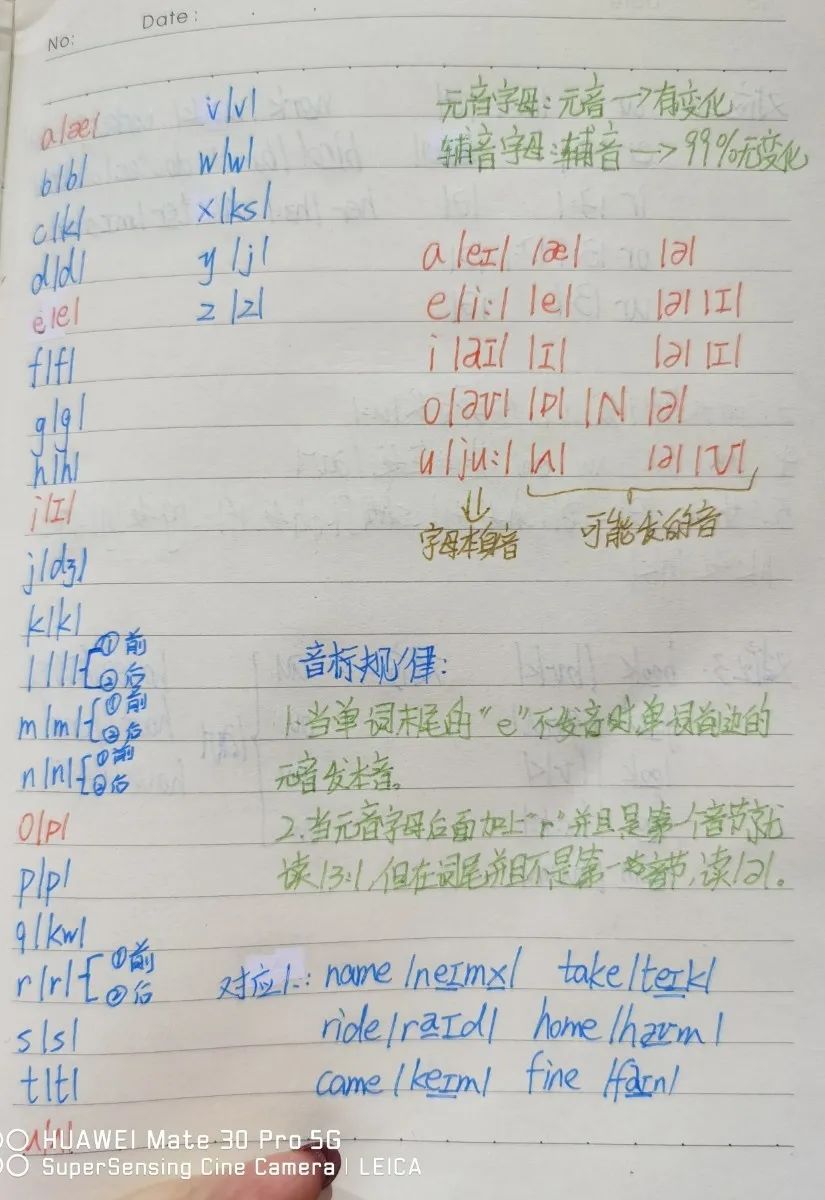 No:
Date:
a/æ/
b/b/
c/k/
d/d/
e/e/
f/f/
g/g/
h/h/
i/ɪ/
j/dʒ/
k/k/
l/l/{①前
②后
m/m/{①前
②后
n/n/{①前
②后
o/ɒ/
p/p/
q/kw/
r/r/{①前
②后
s/s/
t/t/
u/ʌ/
v/v/
w/w/
x/ks/
y/j/
z/z/
元音字母:元音→有变化
辅音字母:辅音→99%无变化
a/eɪ/ /æ/ /ə/
e/i:/ /e/ /ə/ /ɪ/
i/aɪ/ /ɪ/ /ə/ /ɪ/
o/əʊ/ /ɒ/ /ʌ/ /ə/
u/ju:/ /ʌ/ /ə/ /ʊ/
字母本身音 可能发的音
音标规律:
1.当单词末尾由“e”不发音时,单词前边的
元音发本音。
2.当元音字母后面加上“r”并且是第一个音节就
读/ɜ:/,但在词尾并且不是第一个音节,读/ə/。
对应1.: name /neɪmx/ take/teɪk/
ride/raɪd/ home/həʊm/
came/keɪm/ fine /faɪn/
HUAWEI Mate 30 Pro 5G
SuperSensing Cine Camera | LEICA